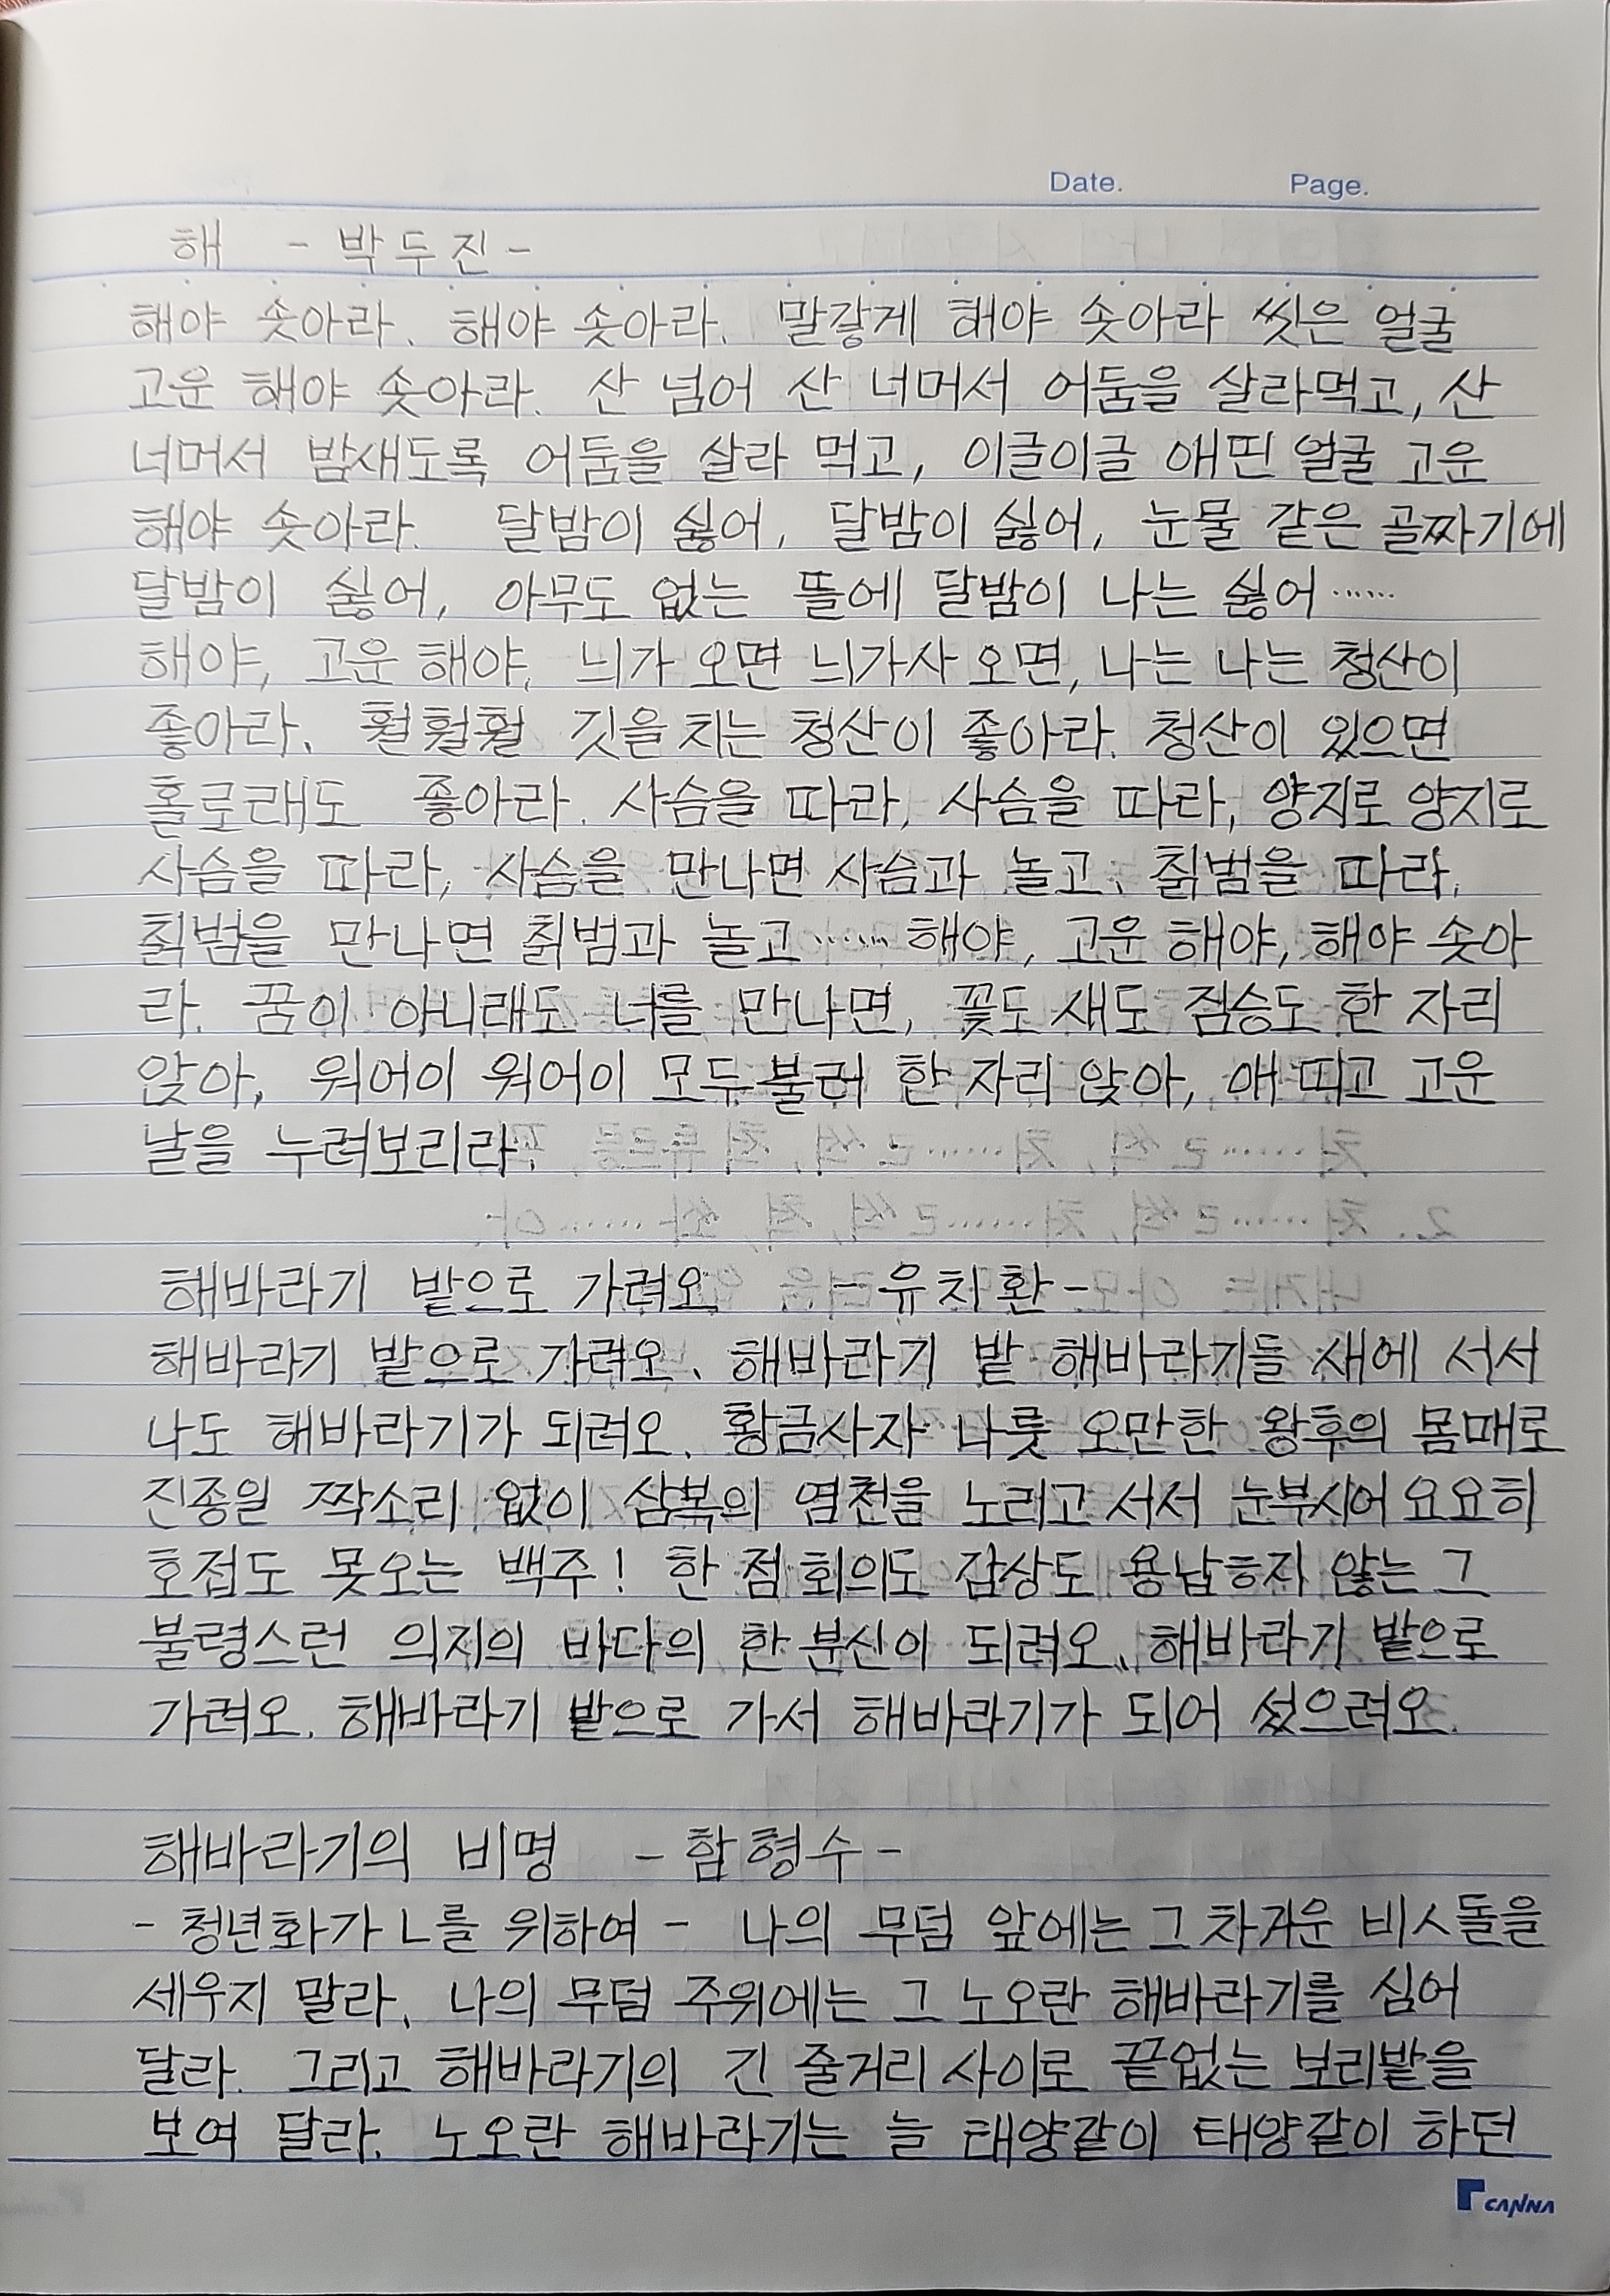 Date. Page.
해 - 박두진 -
해야 솟아라. 해야 솟아라. 말갛게 해야 솟아라 씻은 얼굴
고운 해야 솟아라. 산 넘어 산 너머서 어둠을 살라먹고, 산
너머서 밤새도록 어둠을 살라 먹고, 이글이글 애띤 얼굴 고운
해야 솟아라. 달밤이 싫어, 달밤이 싫어, 눈물 같은 골짜기에
달밤이 싫어, 아무도 없는 뜰에 달밤이 나는 싫어……
해야, 고운 해야, 늬가 오면 늬가사 오면, 나는 나는 청산이
좋아라. 훨훨훨 깃을 치는 청산이 좋아라. 청산이 있으면
홀로래도 좋아라. 사슴을 따라, 사슴을 따라, 양지로 양지로
사슴을 따라, 사슴을 만나면 사슴과 놀고, 칡범을 따라,
칡범을 만나면 칡범과 놀고…… 해야, 고운 해야, 해야 솟아
라. 꿈이 아니래도 너를 만나면, 꽃도 새도 짐승도 한 자리
앉아, 워어이 워어이 모두 불러 한 자리 앉아, 애 띠고 고운
날을 누려보리라
해바라기 밭으로 가려오 - 유치환 -
해바라기 밭으로 가려오. 해바라기 밭 해바라기들 새에 서서
나도 해바라기가 되려오. 황금사자 나룻 오만한 왕후의 몸매로
진종일 짝소리 없이 삼복의 염천을 노리고 서서 눈부시어 요요히
호접도 못오는 백주! 한 점 회의도 감상도 용납ㅎ지 않는 그
불령스런 의지의 바다의 한 분신이 되려오. 해바라기 밭으로
가려오. 해바라기 밭으로 가서 해바라기가 되어 섰으려오.
해바라기의 비명 - 함형수 -
- 청년화가 L를 위하여 - 나의 무덤 앞에는 그 차거운 비ㅅ돌을
세우지 말라. 나의 무덤 주위에는 그 노오란 해바라기를 심어
달라. 그리고 해바라기의 긴 줄거리 사이로 끝없는 보리밭을
보여 달라. 노오란 해바라기는 늘 태양같이 태양같이 하던
CANNA